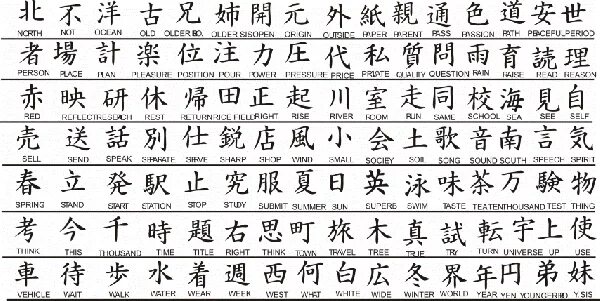 北 不 洋 古 兄 姉 開 元 外 紙 親 通 色 道 安 世
NORTH NOT OCEAN OLD OLDER BO. OLDER SIS OPEN ORIGIN OUTSIDE PAPER PARENT PASS PASSION PATH PEACEFUL PERIOD
者 場 計 楽 位 注 力 圧 代 私 質 問 雨 育 読 理
PERSON PLACE PLAN PLEASURE POSITION POUR POWER PRESSURE PRICE PRIATE QUALITY QUESTION RAIN RAISE READ REASON
赤 映 研 休 帰 田 正 起 川 室 走 同 校 海 見 自
RED REFLECT RESEACH REST RETURN RICE FIELD RIGHT RISE RIVER ROOM RUN SAME SCHOOL SEA SEE SELF
売 送 話 別 仕 鋭 店 風 小 会 土 歌 音 南 言 気
SELL SEND SPEAK SEPARATE SERVE SHARP SHOP WIND SMALL SOCIEY SOIL SONG SOUND SOUTH SPEECH SPIRIT
春 立 発 駅 止 究 服 夏 日 英 泳 味 茶 万 験 物
SPRING STAND START STATION STOP STUDY SUBMIT SUMMER SUN SUPERB SWIM TASTE TEA TENTHOUSAND TEST THING
考 今 千 時 題 右 思 町 旅 木 真 試 転 宇 上 使
THINK THIS THOUSAND TIME TITLE RIGHT THINK TOWN TRAVEL TREE TRUE TRY TURN UNIVERSE UP USE
車 待 歩 水 着 週 西 何 白 広 冬 界 年 円 弟 妹
VEHICLE WAIT WALK WATER WEAR WEEK WEST WHAT WHITE WIDE WINTER WORLD YEAR YEN YOUNGER BO Y.SIS